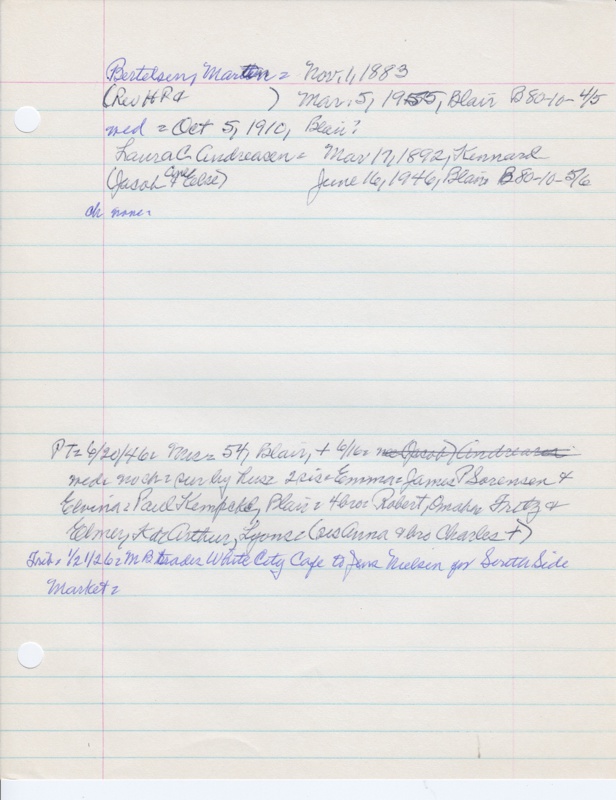 Bertelsen, Martin = Nov. 1, 1883
(Rev H P & ) Mar. 5, 1955, Blair B80-10-4/5
wed = Oct 5, 1910, Blair?
Laura C. Andreasen = Mar 17, 1892, Kennard
(Jacob & Else) June 16, 1946, Blair B80-10-5/6
ch none =
PT = 6/20/46 = Mrs = 54, Blair, + 6/16 =
wed = no ch = sur by hus = 2 sis = Emma = James P Sorensen &
Elvina = Paul Kempcke, Blair = 4 bro = Robert, Omaha Fritz &
Elmer, K & Arthur, Lyons = (sis Anna & bro Charles +)
Trib = 1/21/26 = M B trades White City Cafe to Jens Nielsen for South Side
Market =